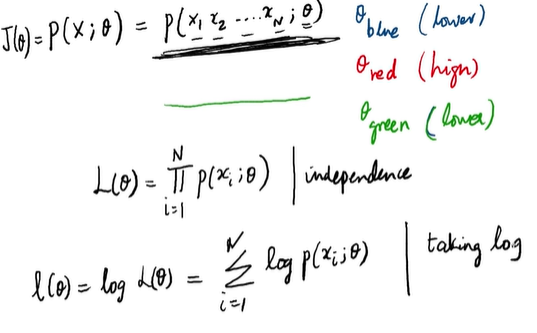 J(θ) = P(X ; θ) = P(x₁ x₂ ....x_N ; θ)
θ_blue (lower)
θ_red (high)
θ_green (lower)
L(θ) = ∏_{i=1}^{N} p(x_i ; θ) | independence
l(θ) = log L(θ) = ∑_{i=1}^{N} log p(x_i ; θ) | taking log